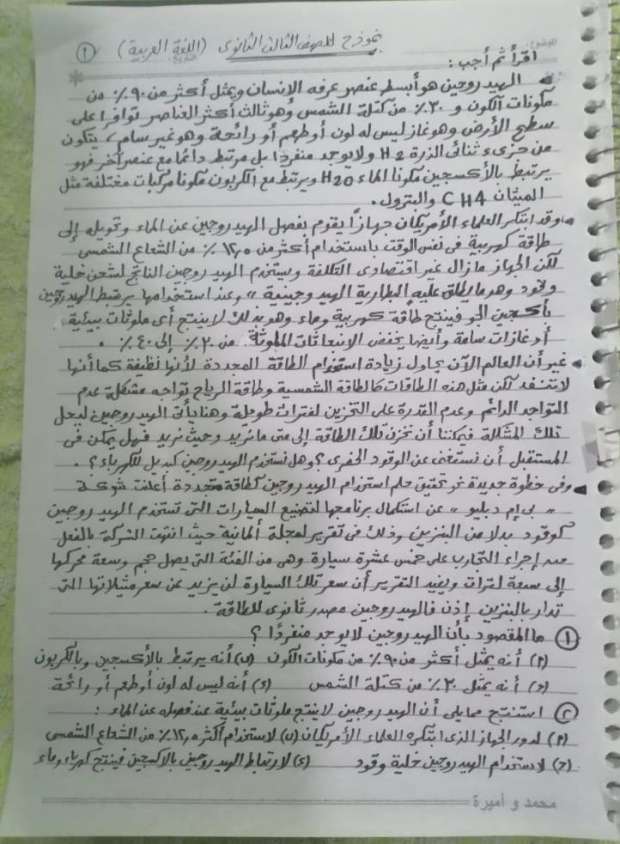 نموذج للصف الثالث الثانوى (اللغة العربية) ①
اقرأ ثم أجب :
الهيدروجين هو أبسط عنصر عرفه الإنسان ويمثل أكثر من ٩٠٪ من
مكونات الكون و ٣٠٪ من كتلة الشمس وهو ثالث أكثر العناصر توافرا على
سطح الأرض وهو غاز ليس له لون أو طعم أو رائحة وهو غير سام ، يتكون
من جزىء ثنائى الذرة H2 ولا يوجد منفردا بل مرتبط دائما مع عنصر آخر فهو
يرتبط بالأكسجين مكونا الماء H2O ويرتبط مع الكربون مكونا مركبات مختلفة مثل
الميثان CH4 والبترول .
وقد ابتكر العلماء الأمريكان جهازاً يقوم بفصل الهيدروجين عن الماء وتحويله إلى
طاقة كهربية فى نفس الوقت باستخدام أكثر من ١٢,٥٪ من الشعاع الشمسى
لكن الجهاز مازال غير اقتصادى التكلفة ويستخدم الهيدروجين الناتج لشحن خلية
وقود وهو ما يطلق عليه البطارية الهيدروجينية ، وعند استخدامها يرتبط الهيدروجين
بأكسجين الجو فينتج طاقة كهربية وماء وهو بذلك لا ينتج أى ملوثات بيئية
أو غازات سامة وأيضا يخفض الانبعاثات الملوثة من ٢٠٪ إلى ٤٠٪ .
غير أن العالم الآن يحاول زيادة استخدام الطاقة المجددة لأنها نظيفة كما أنها
لا تنفد لكن مثل هذه الطاقات كالطاقة الشمسية وطاقة الرياح تواجه مشكلة عدم
التواجد الدائم وعدم القدرة على التخزين لفترات طويلة وهنا يأتى الهيدروجين ليحل
تلك المشكلة فيمكننا أن نخزن تلك الطاقة إلى متى ما نريد وحيث نريد فهل يمكن فى
المستقبل أن نستغنى عن الوقود الحفرى ؟ وهل نستخدم الهيدروجين كبديل للكهرباء ؟ .
وفى خطوة جديدة نحو تحقيق حلم استخدام الهيدروجين كطاقة متجددة أعلنت شركة
" بى إم دبليو " عن استكمال برنامجها لتصنيع السيارات التى تستخدم الهيدروجين
كوقود بدلا من البنزين وذلك فى تقرير لمجلة ألمانية حيث انتهت الشركة بالفعل
من إجراء التجارب على خمس عشرة سيارة وهى من الفئة التى يصل حجم وسعة محركها
إلى سبعة لترات ويفيد التقرير أن سعر تلك السيارة لن يزيد عن سعر مثيلاتها التى
تدار بالبنزين إذن فالهيدروجين مصدر ثانوى للطاقة .
① ما المقصود بأن الهيدروجين لا يوجد منفردا ؟
(أ) أنه يمثل أكثر من ٩٠٪ من مكونات الكون (ب) أنه يرتبط بالأكسجين وبالكربون
(ج) أنه يمثل ٣٠٪ من كتلة الشمس (د) أنه ليس له لون أو طعم أو رائحة
② استنتج مما يلى أن الهيدروجين لا ينتج ملوثات بيئية عند فصله عن الماء :
(أ) لدور الجهاز الذى ابتكره العلماء الأمريكان (ب) لاستخدام أكثر ١٢,٥٪ من الشعاع الشمسى
(ج) لاستخدام الهيدروجين خلية وقود (د) لارتباط الهيدروجين بالأكسجين فينتج كهرباء وماء
محمد و أميرة